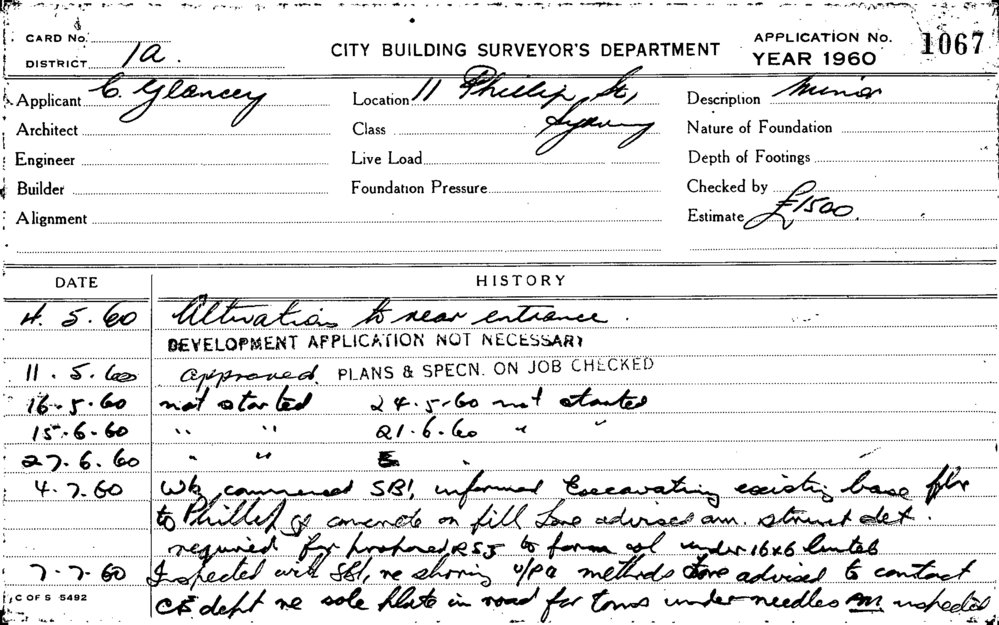 CARD No.
DISTRICT 1a.
CITY BUILDING SURVEYOR'S DEPARTMENT
APPLICATION No. 1067
YEAR 1960
Applicant C. Glancey
Location 11 Phillip St, Sydney
Description Minor
Architect
Class
Nature of Foundation
Engineer
Live Load
Depth of Footings
Builder
Foundation Pressure
Checked by
Alignment
Estimate £1500.
DATE HISTORY
4.5.60 Alterations to rear entrance.
DEVELOPMENT APPLICATION NOT NECESSARY
11.5.60 approved. PLANS & SPECN. ON JOB CHECKED
16.5.60 not started 24.5.60 not started
15.6.60 " " 21.6.60 " "
27.6.60 " "
4.7.60 Wk commenced SBI, informed Excavating existing base flr
to Phillip concrete on fill advised am. struct det.
required for proposed RSJ to form under 16x6 lintels
7.7.60 Inspected with SBI, re shoring U/P methods advised to contact
CE dept re sole plate in road for toms under needles inspected
C OF S 5492